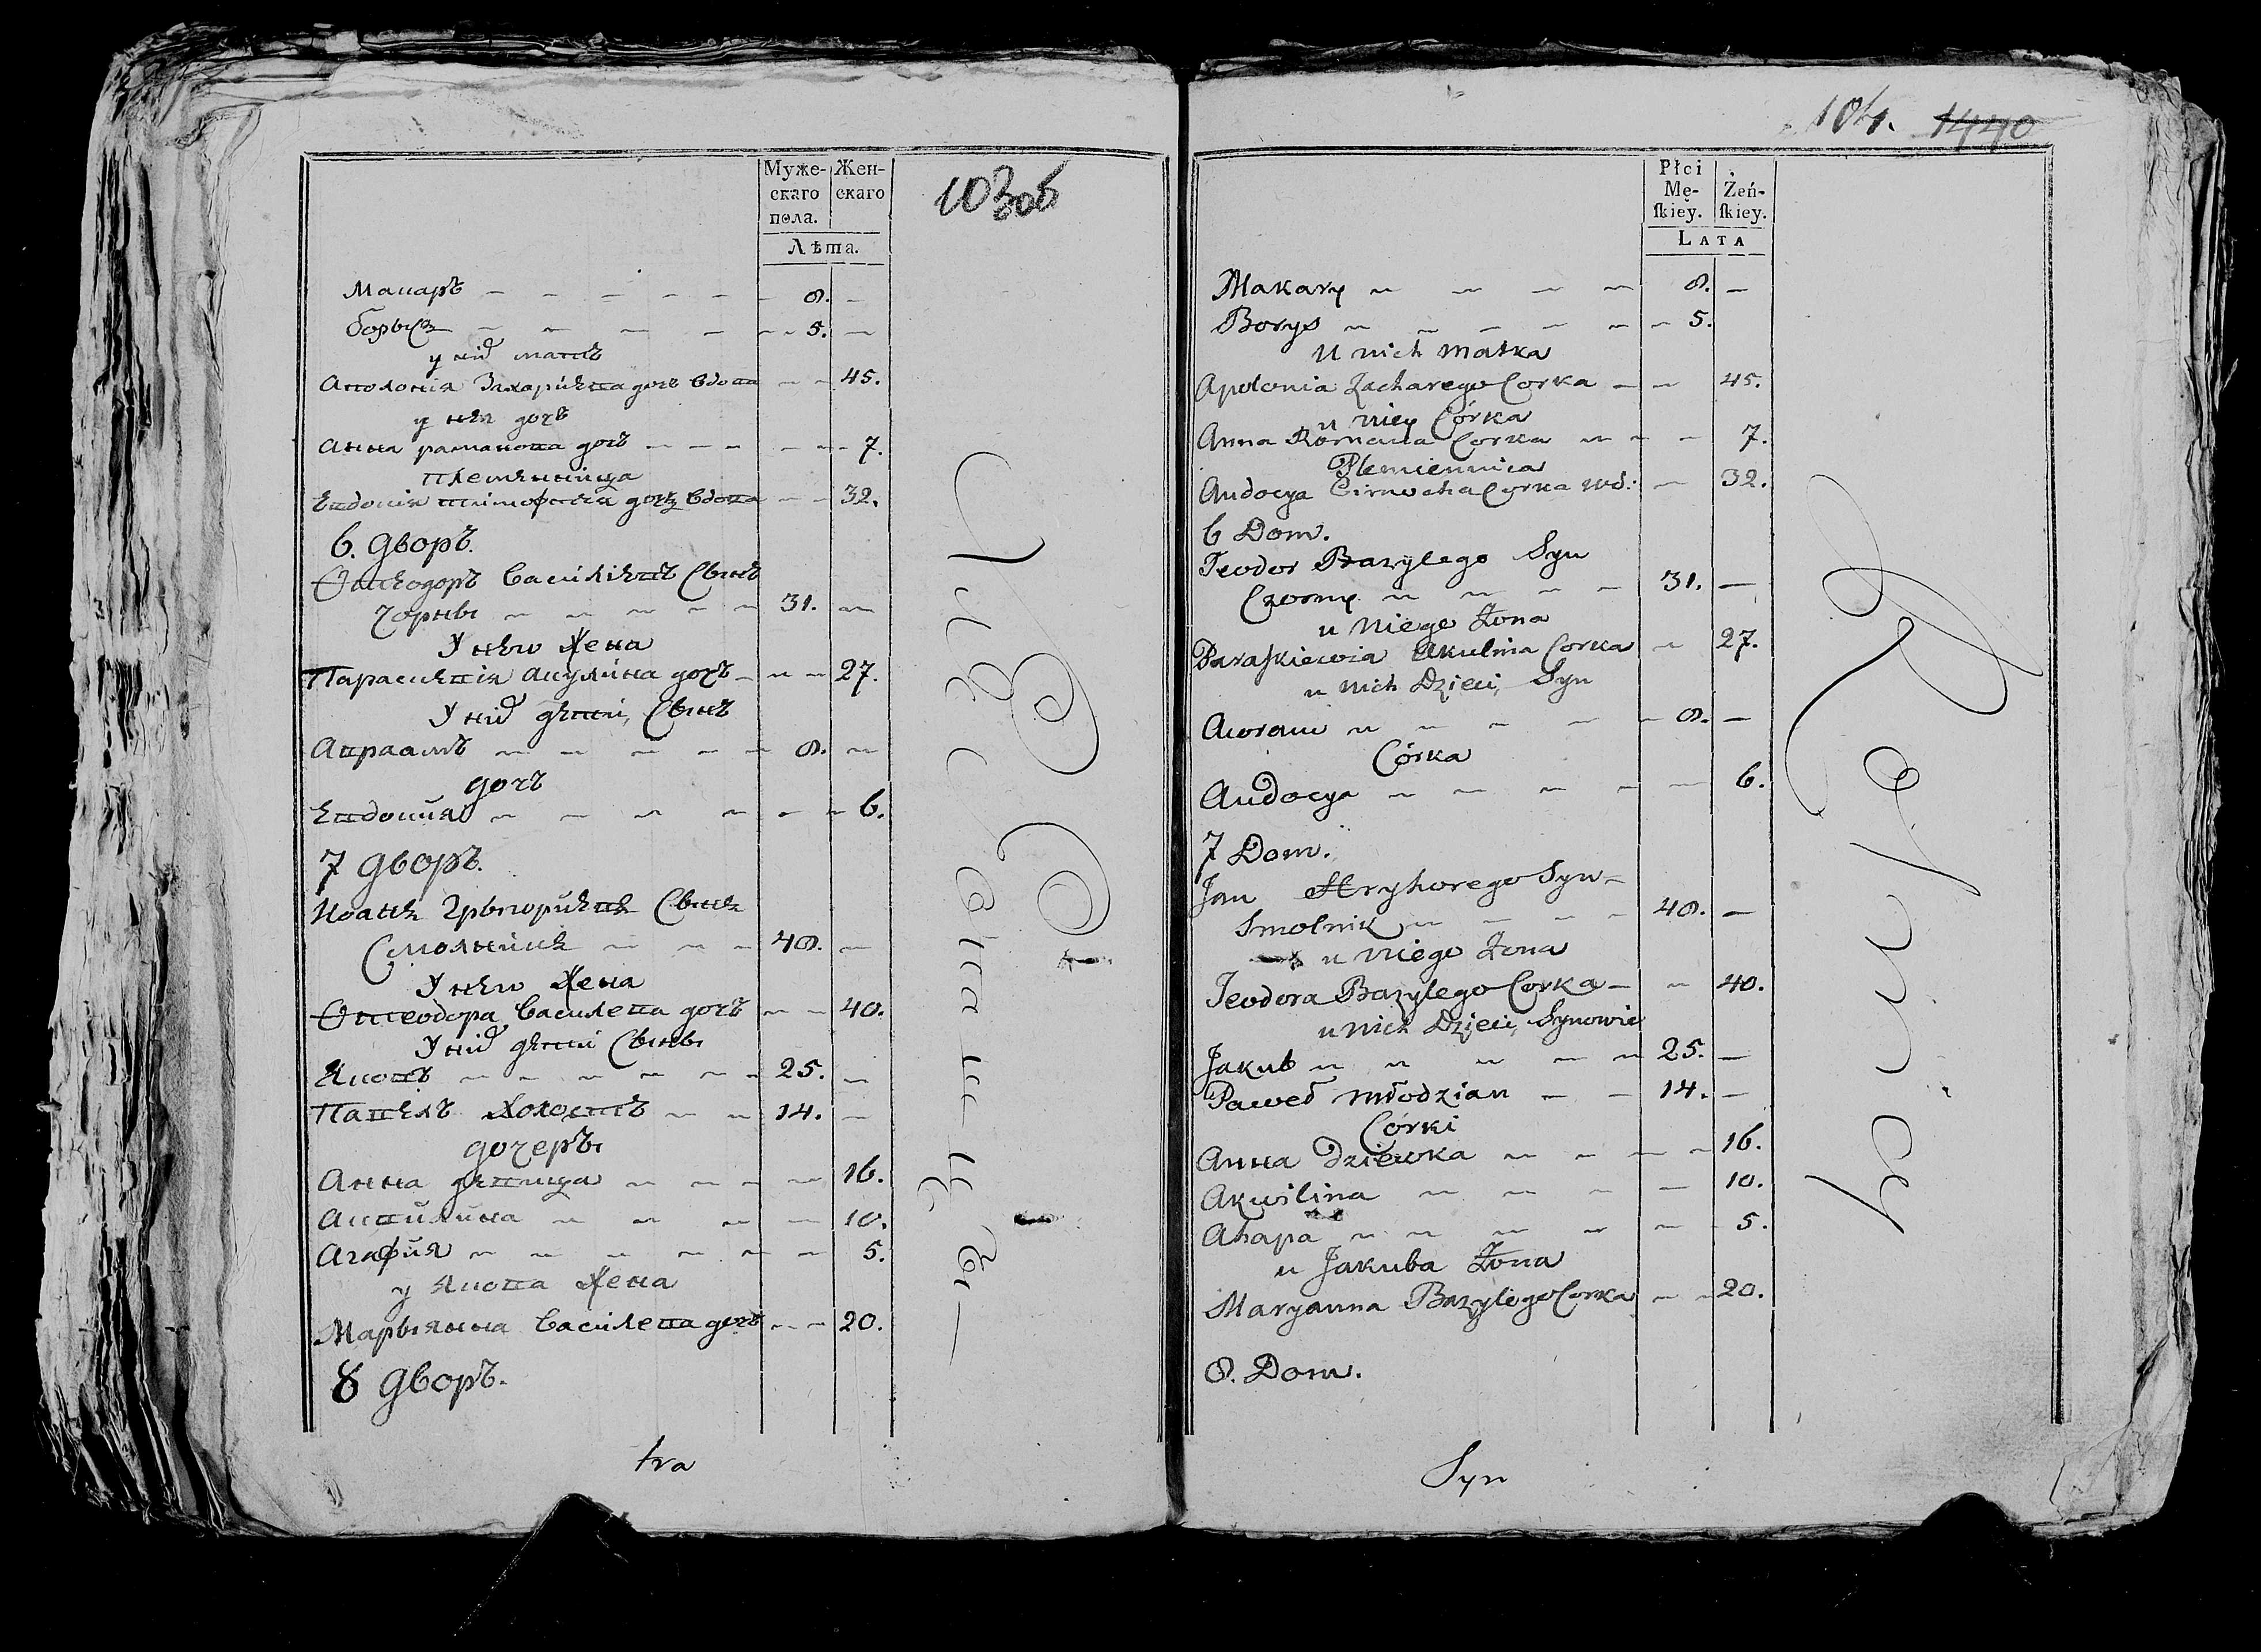 Муже-
скаго
пола.
Жен-
скаго
Лѣта.
103об
Макаръ 8. —
борысъ 5. —
у нихъ мать
Аполонія Захаріева дочь вдова 45.
у нея дочь
Анна раманова дочь 7.
племяница
Евдокія тимофеея дочь вдова 32.
6. дворъ.
Ѳтеодоръ василіевъ Сынъ
чорны 31. —
У него Жена
Параскевія акулина дочь 27.
У нихъ дети, Сынъ
Авраамъ 8. —
дочь
Евдокия 6.
7 дворъ.
Иоанъ Грыгориевъ Сынъ
Смольникъ 48. —
У него Жена
Ѳтеодора василева дочь 40.
У нихъ дети Сыны
Яковъ 25. —
Павелъ Холостъ 14. —
дочеры
Анна девица 16.
Аквилина 10.
Агафия 5.
у Якова Жена
Марыянна василева дочь 20.
8 дворъ.
tra
104. 1440
Płci
Mę-
ſkiey.
Żeń-
ſkiey.
LATA
Makary 8. —
Borys 5.
U nich matka
Apolonia Zacharego Corka 45.
u niey Córka
Anna Romana Corka 7.
Plemiennica
Audocya Cimocha Corka wd: 32.
6 Dom.
Teodor Bazylego Syn
Czorny 31. —
u Niego Żona
Paraſkiewia Akulina Corka 27.
u nich Dzieci, Syn
Awram 8. —
Córka
Audocya 6.
7 Dom.
Jan Hryhorego Syn
Smolnik 48. —
u niego Żona
Teodora Bazylego Corka 40.
u nich Dzieci, Synowie
Jakub 25. —
Paweł młodzian 14. —
Córki
Anna dziewka 16.
Akwilina 10.
Ahapa 5.
u Jakuba Żona
Maryanna Bazylego Corka 20.
8. Dom.
Syn